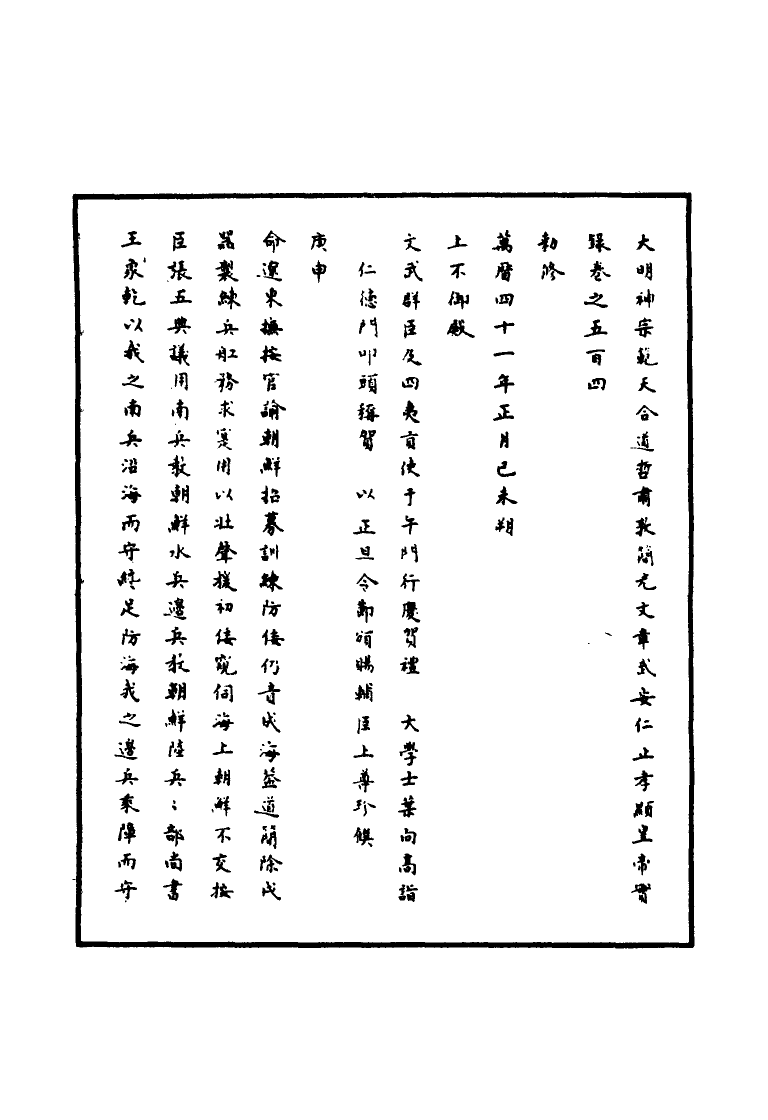 大明神宗範天合道哲肅敦簡光文章武安仁止孝顯皇帝實
錄卷之五百四
勅修
萬曆四十一年正月己未朔
上不御殿
文武群臣及四夷貢使于午門行慶賀禮　大學士葉向高詣
仁德門叩頭稱賀　以正旦令節頒賜輔臣上尊珍饌
庚申
命遼東撫按官諭朝鮮招募訓練防倭仍責成海蓋道簡除戎
器製練兵船務求實用以壯聲援初倭窺伺海上朝鮮不支按
臣張五典議用南兵教朝鮮水兵邊兵教朝鮮陸兵：部尚書
王象乾以我之南兵沿海而守終足防海我之邊兵乘障而守